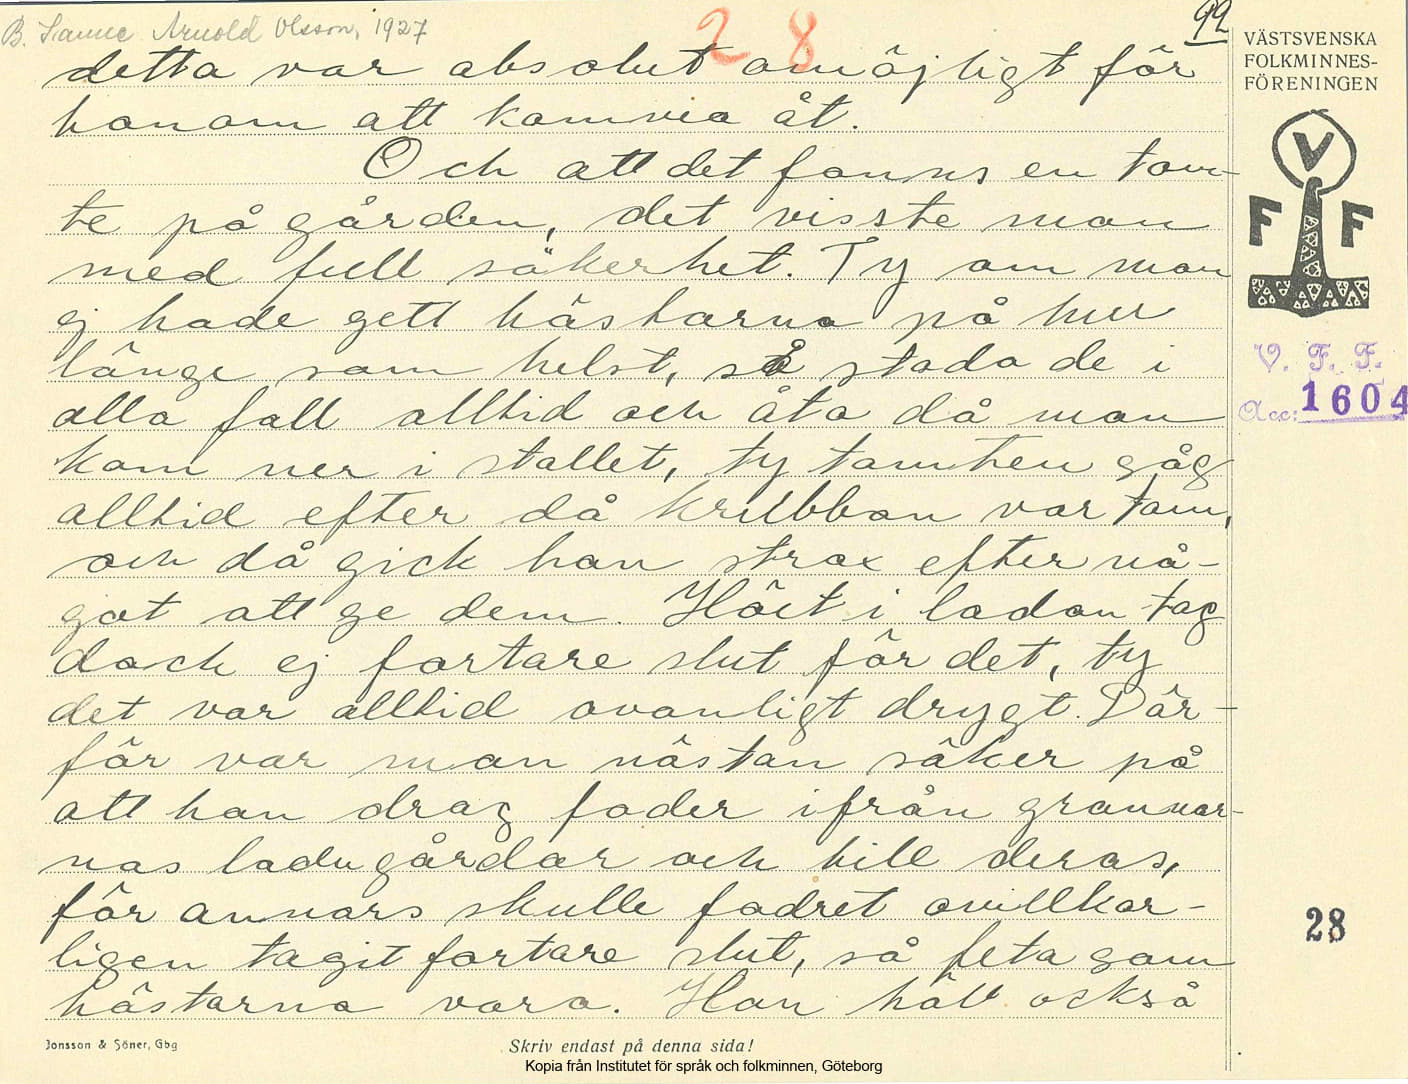 B. Sanne Arnold Olsson, 1927
28
92
detta var absolut omöjligt för
honom att komma åt.
Och att det fanns en tom-
te på gården, det visste man
med full säkerhet. Ty om man
ej hade gett hästarna på hur
länge som helst, så stodo de i
alla fall alltid och åto då man
kom ner i stallet, ty tomten såg
alltid efter då krubban var tom,
och då gick han strax efter nå-
got att ge dem. Höet i ladan tog
dock ej fortare slut för det, ty
det var alltid ovanligt drygt. Där-
för var man nästan säker på
att han drog foder ifrån grannar-
nas ladugårdar och till deras,
för annars skulle fodret ovillkor-
ligen tagit fortare slut, så feta som
hästarna voro. Han höll också
VÄSTSVENSKA
FOLKMINNES-
FÖRENINGEN
V
F F
V. F. F.
Acc: 1604
28
Jonsson & Söner, Gbg
Skriv endast på denna sida!
Kopia från Institutet för språk och folkminnen, Göteborg